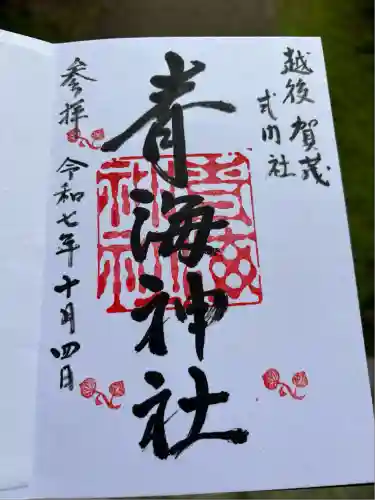 越後 賀茂
式内社
青海神社
参拝 令和七年十月四日
青海
神社